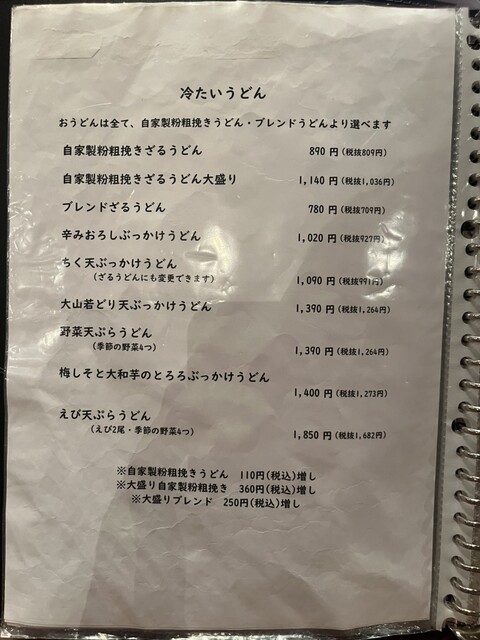 冷たいうどん
おうどんは全て、自家製粉粗挽きうどん・ブレンドうどんより選べます
自家製粉粗挽きざるうどん 890 円(税抜809円)
自家製粉粗挽きざるうどん大盛り 1,140 円(税抜1,036円)
ブレンドざるうどん 780 円(税抜709円)
辛みおろしぶっかけうどん 1,020 円(税抜927円)
ちく天ぶっかけうどん
(ざるうどんにも変更できます) 1,090 円(税抜991円)
大山若どり天ぶっかけうどん 1,390 円(税抜1,264円)
野菜天ぷらうどん
(季節の野菜4つ) 1,390 円(税抜1,264円)
梅しそと大和芋のとろろぶっかけうどん
1,400 円(税抜1,273円)
えび天ぷらうどん
(えび2尾・季節の野菜4つ) 1,850 円(税抜1,682円)
※自家製粉粗挽きうどん 110円(税込)増し
※大盛り自家製粉粗挽き 360円(税込)増し
※大盛りブレンド 250円(税込)増し